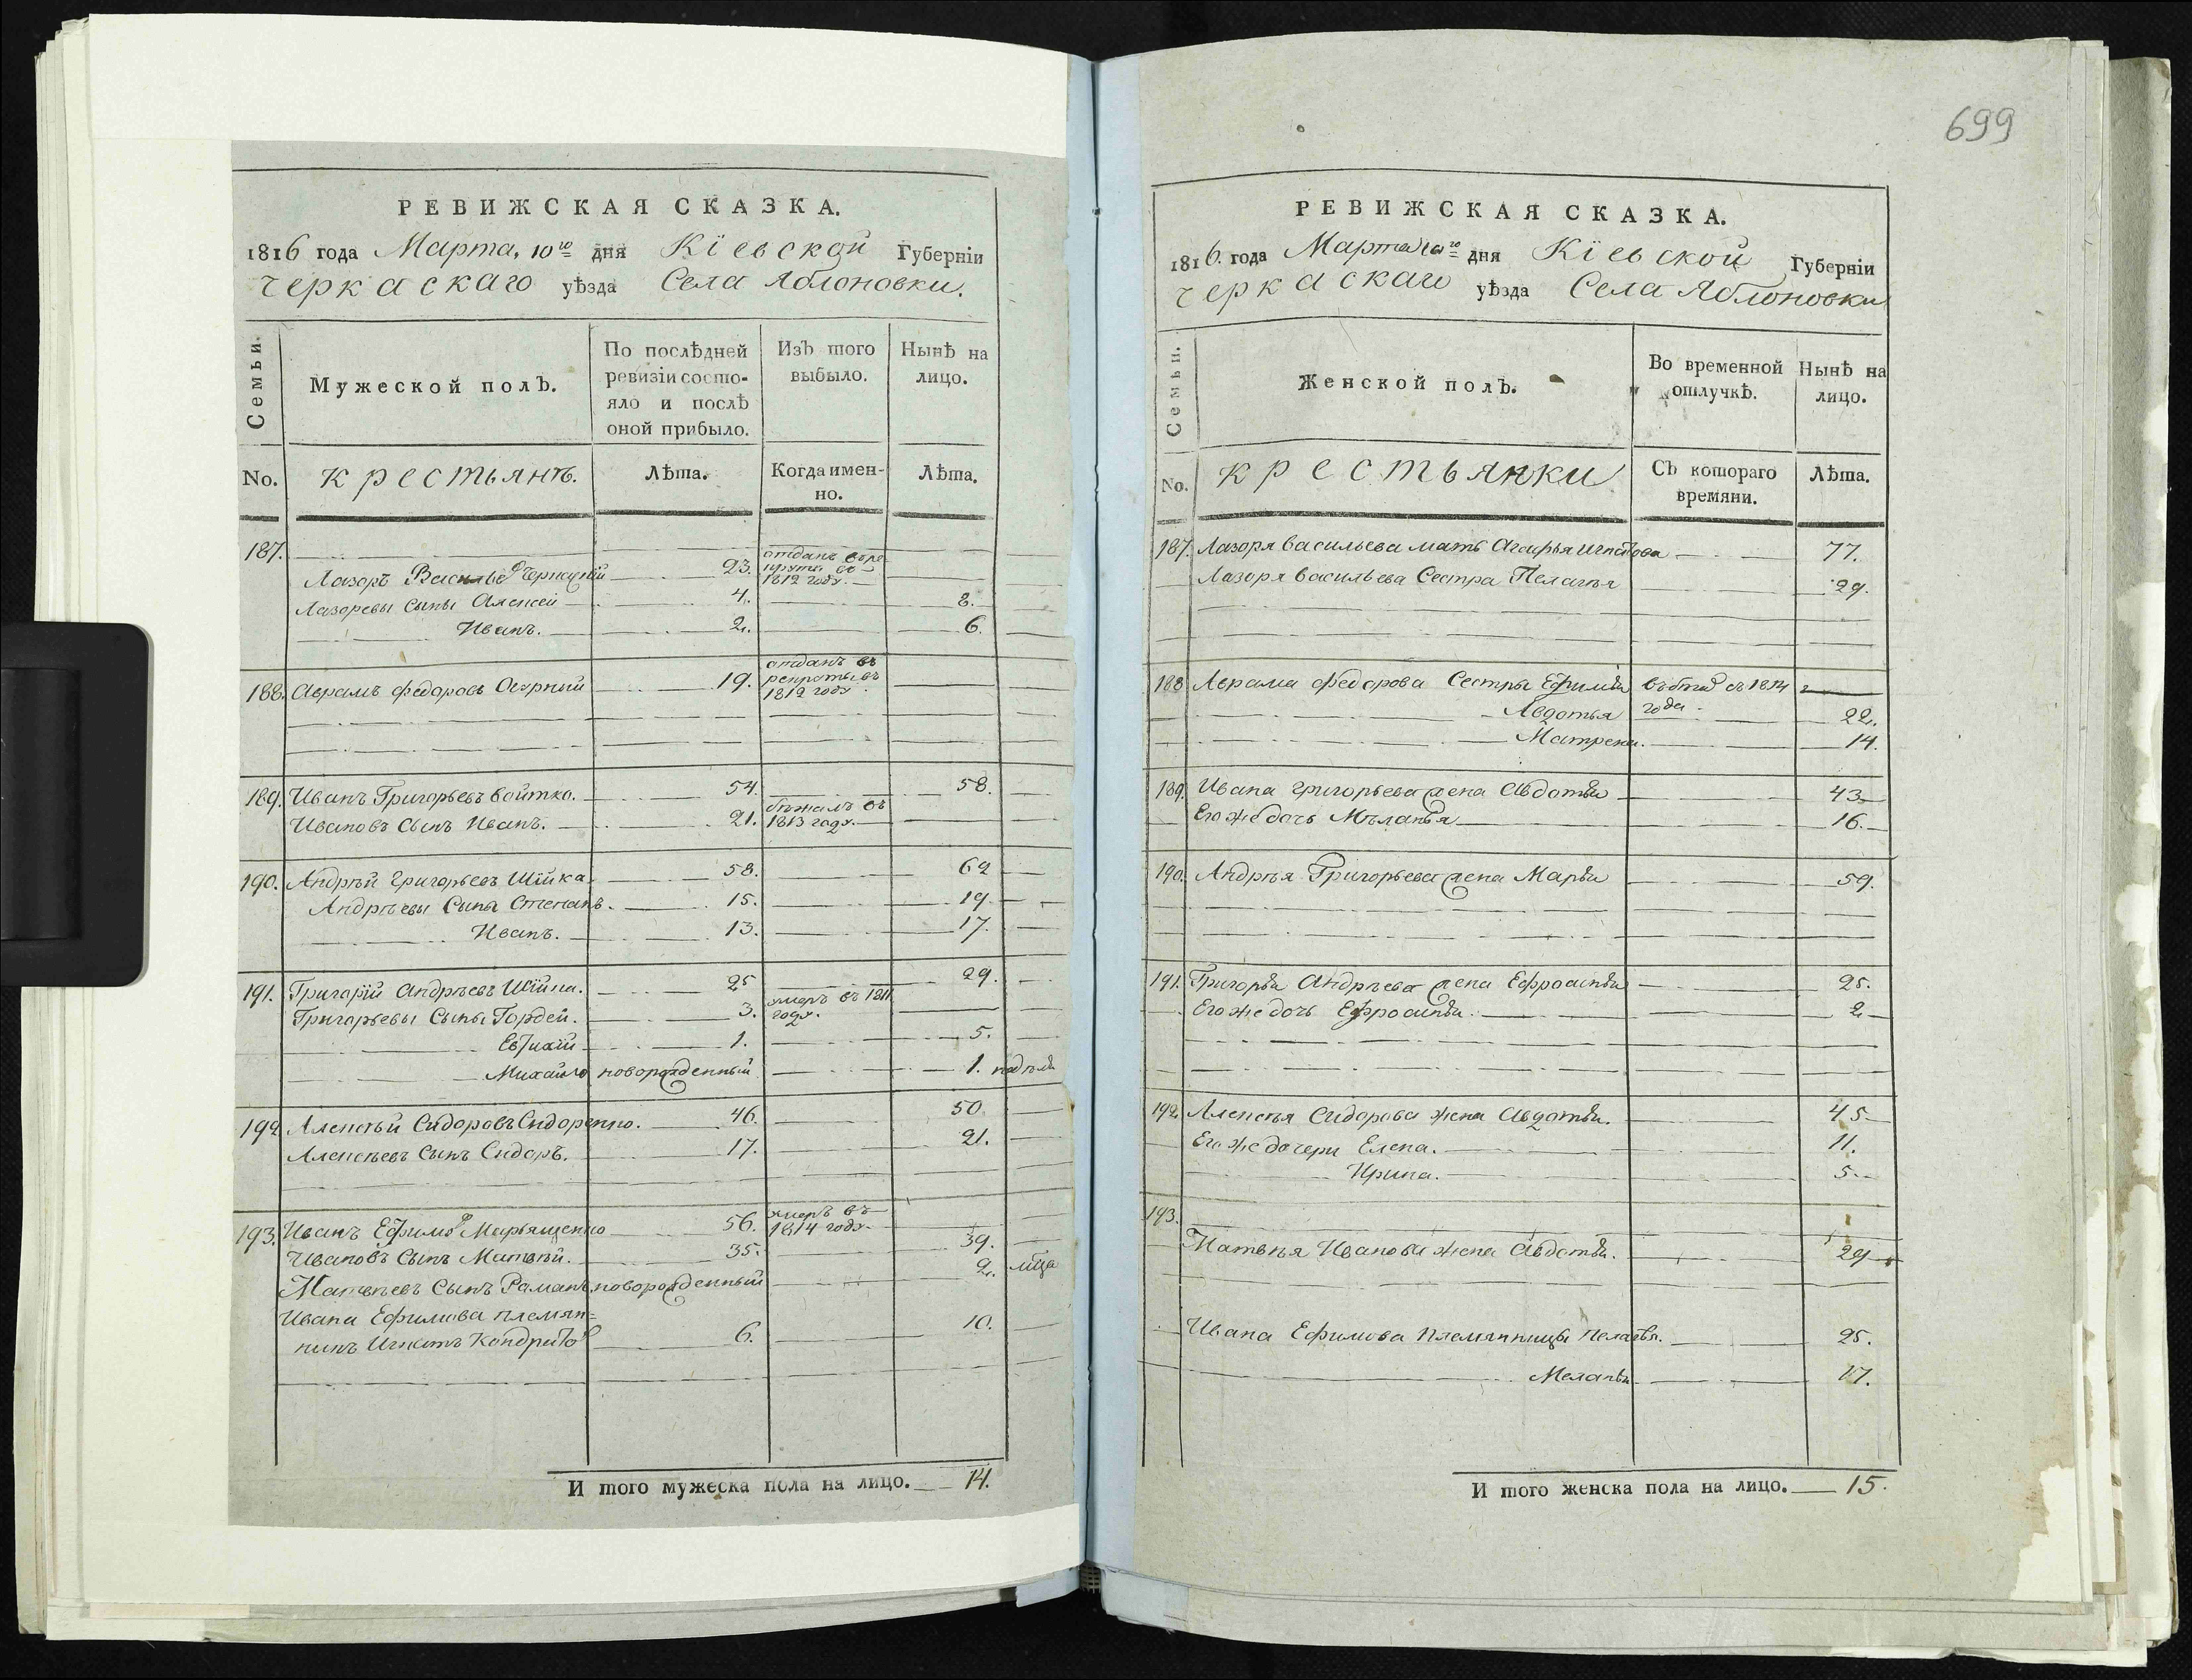 699
РЕВИЖСКАЯ СКАЗКА.
1816 года Марта, 10го дня Кіевской Губерніи
Черкаскаго уѣзда Села Яблоновки.
Семьи.
Мужеской полъ.
По послѣдней ревизіи состо-
яло и послѣ
оной прибыло.
Изъ того
выбыло.
Нынѣ на
лицо.
No.
Крестьянъ.
Лѣта.
Когда имен-
но.
Лѣта.
187.
Лазоръ Васильев 23. отданъ въ
1812 году.
Лазоревы сыны Алексей 4. 8.
Иванъ. 2. 6.
188. Аврамъ Федоровъ 19. отданъ въ
рекруты въ
1812 году
189. Иванъ Григорьевъ Войтко. 54. 58.
Ивановъ сынъ Иванъ. 21. бѣжалъ въ
1813 году.
190. Андрѣй Григорьевъ Шійка. 58. 62
Андрѣевы Сыны Степанъ. 15. 19.
Иванъ. 13. 17.
191. Григорій Андрѣевъ Шійка. 25 29.
Григорьевы Сыны Гордей. 3. умеръ въ 1811
году.
1. 5.
Михайло новорожденный 1.
192 Алексѣй Сидоровъ Сидоренко. 46. 50.
Алексѣевъ Сынъ Сидоръ. 17. 21.
193. Иванъ Ефимов Марьященко 56. умеръ въ
1814 году.
Ивановъ Сынъ Матвѣй. 35. 39.
Матвѣевъ Сынъ Романъ новорожденный 2.
Ивана Ефимова племян=
никъ Игнатъ Кондратов 6. 10.
И того мужеска пола на лицо. 14.
РЕВИЖСКАЯ СКАЗКА.
1816. года Марта 10го дня Кіевской Губерніи
Черкаскаго уѣзда Села Яблоновки
Семьи.
Женской полъ.
Во временной
отлучкѣ.
Нынѣ на
лицо.
No.
Крестьянки
Съ котораго
времяни.
Лѣта.
187. Лазоря Васильева мать Агафья Игнатова 77.
Лазоря Васильева Сестра Пелагея 29.
188 Аврама Федорова Сестры Ефимья съ 1814
года.
Авдотья 22.
Матрена. 14.
189. Ивана Григорьева жена Авдотья 43.
Его же дочь Мѣланья 16.
190. Андрѣя Григорьева жена Марья 59.
191. Григорья Андрѣева жена Ефросинья 25.
Его же дочь Ефросинья. 2
192. Алексѣя Сидорова жена Авдотья. 45
Его же дочери Елена. 11.
Ирина. 5.
193.
Матвѣя Иванова жена Авдотья. 29
Ивана Ефимова племянницы Пелагея. 25.
Меланья 17.
И того женска пола на лицо. 15.